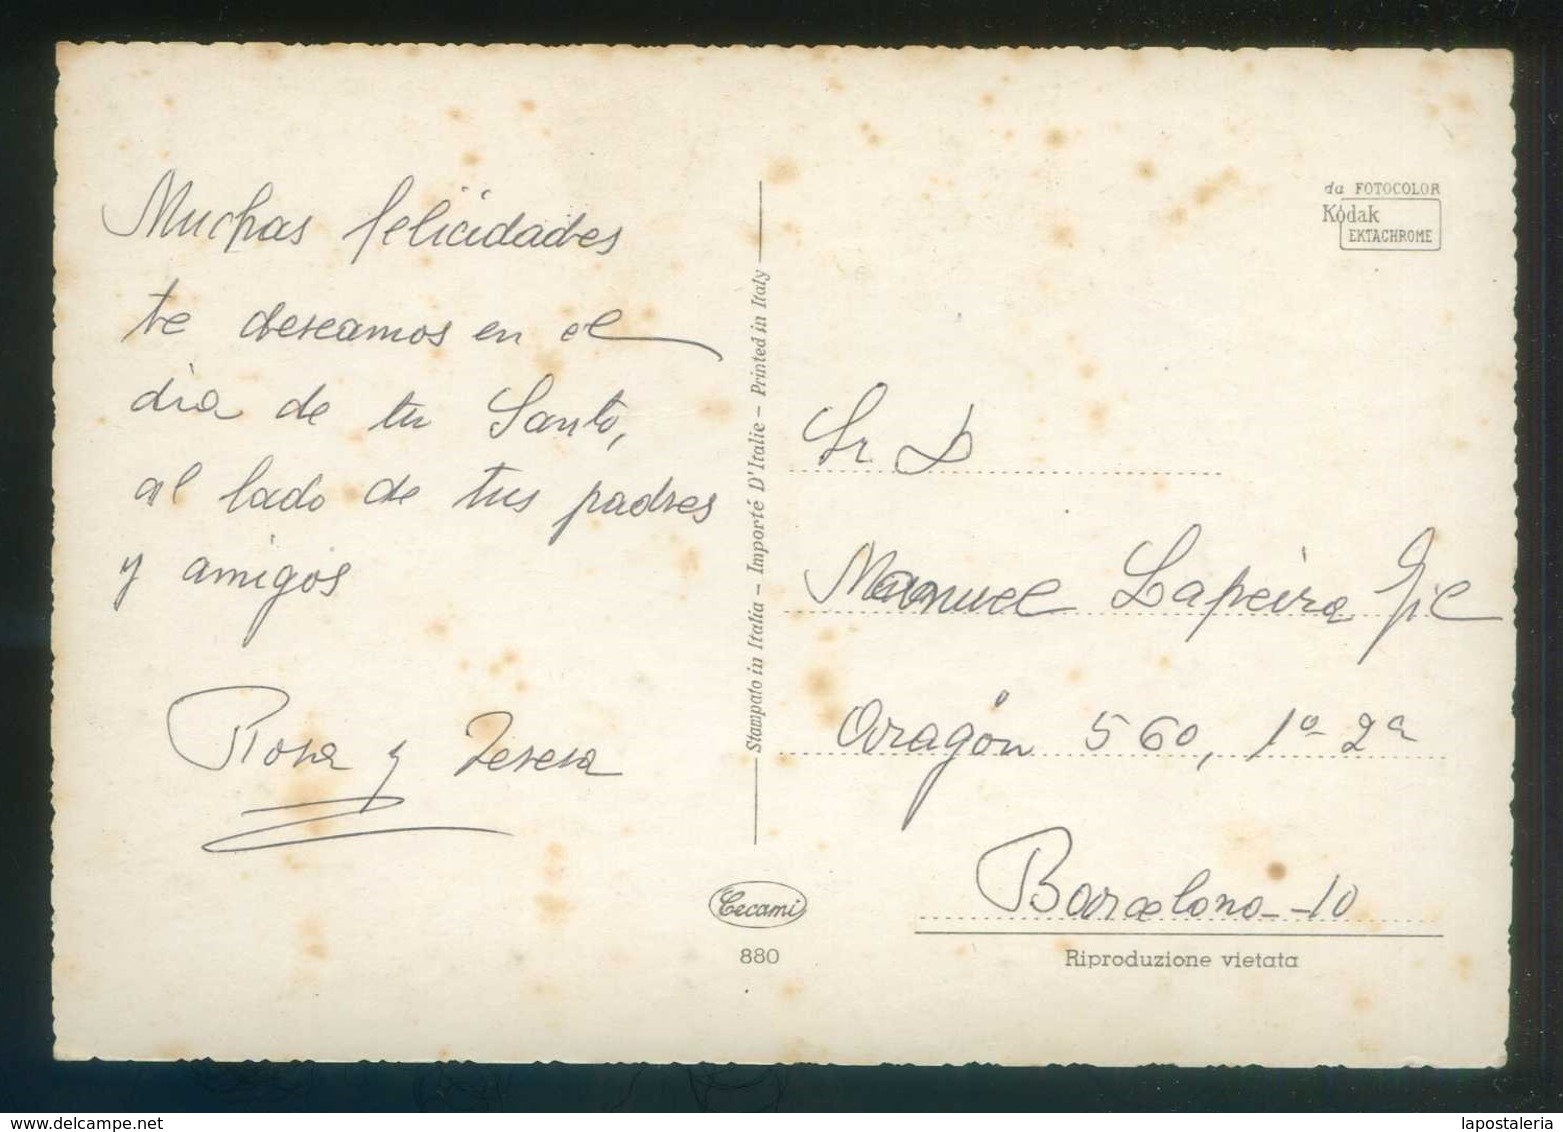 Muchas felicidades
te deseamos en el
dia de tu Santo,
al lado de tus padres
y amigos
Rosa y Teresa
Stampato in Italia - Importé D'Italie - Printed in Italy
Cecami
880
da FOTOCOLOR
Kodak
EKTACHROME
Sr. D
Manuel Lapeira Gil
Aragón 560, 1º - 2ª
Barcelona - 10
Riproduzione vietata
delcampe.net
lapostaleria